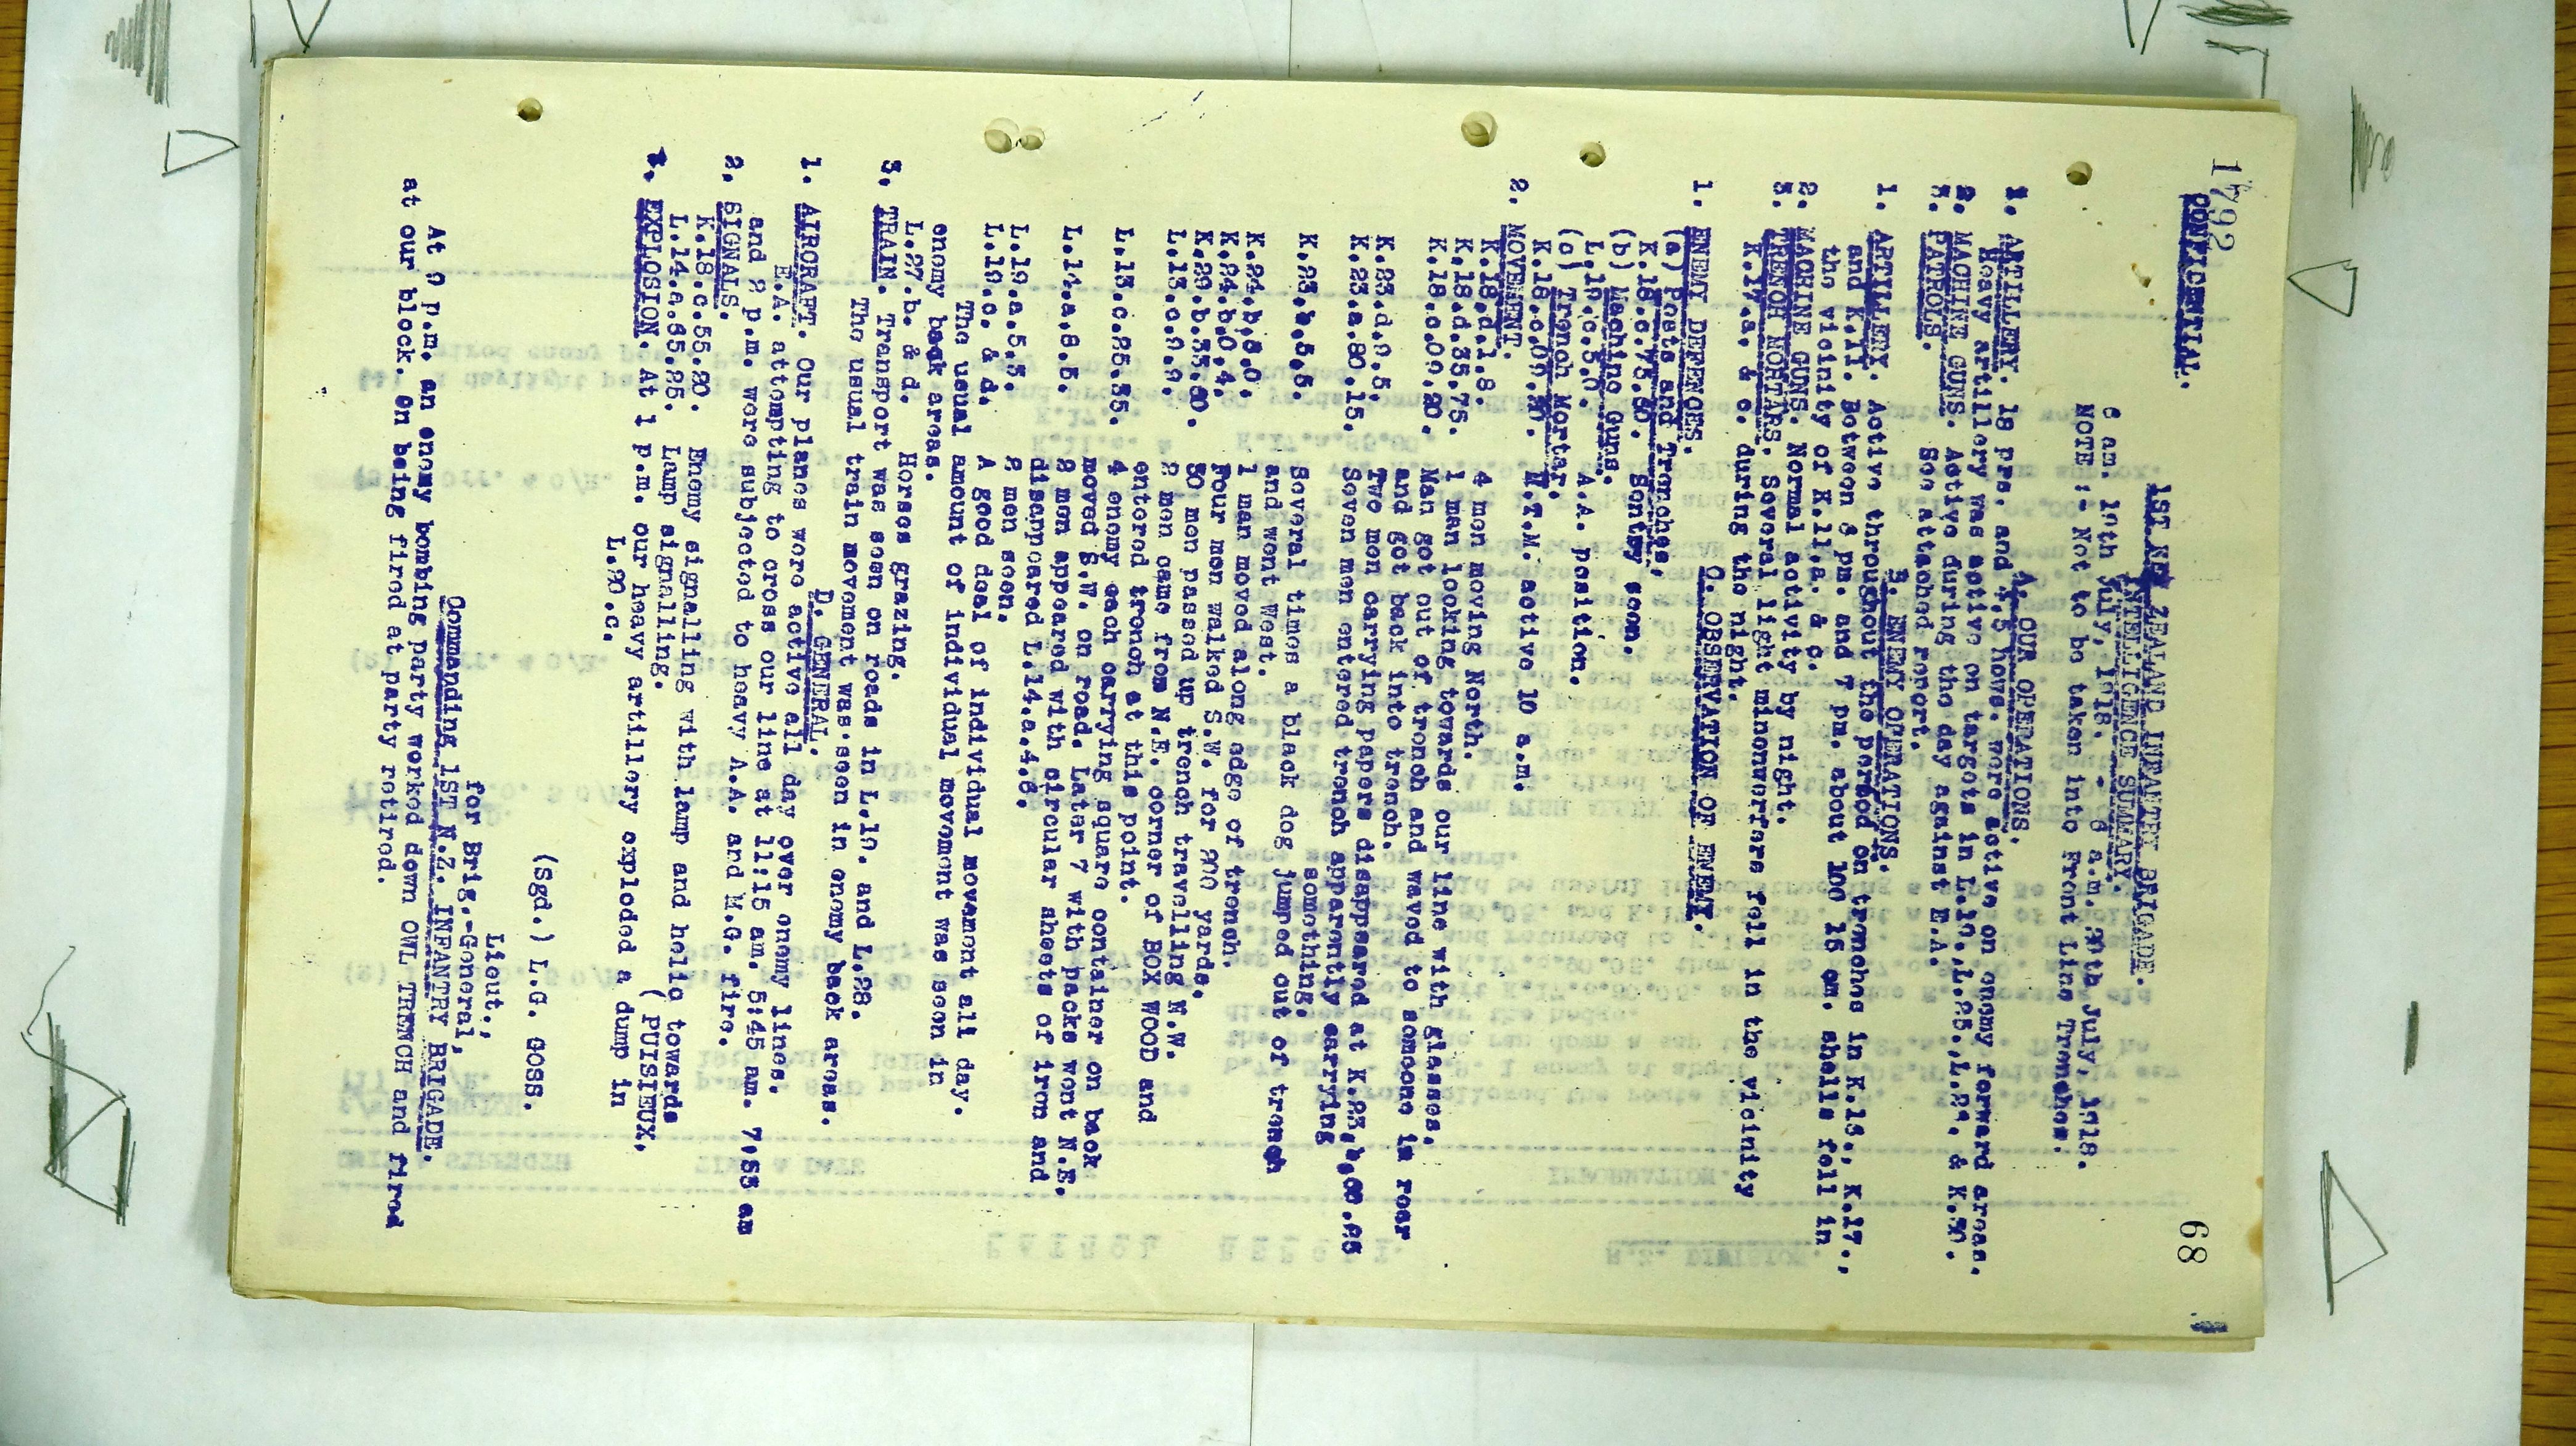 1792
68
CONFIDENTIAL.
1ST NEW ZEALAND INFANTRY BRIGADE.
INTELLIGENCE SUMMARY.
6 am. 19th July, 1918. - 6 a.m. 20th July, 1918.
NOTE :- Not to be taken into Front Line Trenches.
A. OUR OPERATIONS.
1. ARTILLERY. 18 prs. and 4.5 hows. were active on enemy forward areas.
Heavy artillery was active on targets in L.19.,L.25.,L.29. & K.30.
2. MACHINE GUNS. Active during the day against E.A.
3. PATROLS. See attached report.
B. ENEMY OPERATIONS.
1. ARTILLERY. Active throughout the period on trenches in K.16., K.17.,
and K.11. Between 6 pm. and 7 pm. about 100 15 cm. shells fell in
the vicinity of K.11.a. & c.
2. MACHINE GUNS. Normal activity by night.
3. TRENCH MORTARS. Several light minenwerfers fell in the vicinity
K.17.a. & c. during the night.
C. OBSERVATION OF ENEMY.
1. ENEMY DEFENCES.
(a) Posts and Trenches.
K.18.c.75.80. Sentry seen.
(b) Machine Guns.
L.19.c.5.0. A.A. position.
(c) Trench Mortar.
K.18.c.09.20. M.T.M. active 10 a.m.
2. MOVEMENT.
K.18.d.1.8. 4 men moving North.
K.18.d.35.75. 1 man looking towards our line with glasses.
K.18.c.09.20. Man got out of trench and waved to someone in rear
and got back into trench.
K.23.d.9.5. Two men carrying papers disappeared at K.23.b.00.25
K.23.a.80.15. Seven men entered trench apparently carrying
something.
K.23.b.5.5. Several times a black dog jumped out of trench
and went West.
K.24.b.8.0. 1 man moved along edge of trench.
K.24.b.0.4. Four men walked S.W. for 200 yards.
K.29.b.35.60. 30 men passed up trench travelling N.W.
L.13.c.9.9. 2 men came from N.E. corner of BOX WOOD and
entered trench at this point.
L.13.c.25.35. 4 enemy each carrying square container on back
moved S.W. on road. Later 7 with packs went N.E.
L.14.a.8.5. 2 men appeared with circular sheets of iron and
disappeared L.14.a.4.6.
L.19.a.5.5. 2 men seen.
L.19.c. & d. A good deal of individual movement all day.
The usual amount of individual movement was seen in
enemy back areas.
L.27.b. & d. Horses grazing.
Transport was seen on roads in L.19. and L.28.
3. TRAIN. The usual train movement was seen in enemy back areas.
D. GENERAL.
1. AIRCRAFT. Our planes were active all day over enemy lines.
E.A. attempting to cross our line at 11:15 am. 5:45 am. 7:55 am
and 2 p.m. were subjected to heavy A.A. and M.G. fire.
2. SIGNALS.
K.18.c.55.20. Enemy signalling with lamp and helio towards
L.14.a.85.25. Lamp signalling. ( PUISIEUX.
EXPLOSION. At 1 p.m. our heavy artillery exploded a dump in
L.20.c.
(Sgd.) L.G. GOSS.
Lieut.,
for Brig.-General,
Commanding 1ST N.Z. INFANTRY BRIGADE.
At 9 p.m. an enemy bombing party worked down OWL TRENCH and fired
at our block. On being fired at party retired.